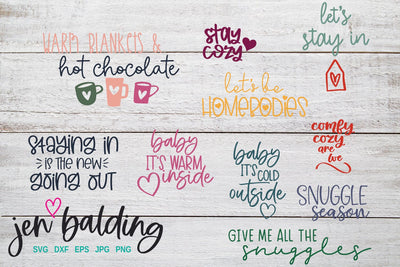 WARM BLANKETS &
hot chocolate
stay
cozy
let's
stay in
let's be
HOMEBODIES
comfy
cozy
are
we
staying in
is the new
going out
baby
it's warm
inside
baby
it's cold
outside
SNUGGLE
season
jen balding
SVG DXF EPS JPG PNG
GIVE ME ALL THE
snuggles